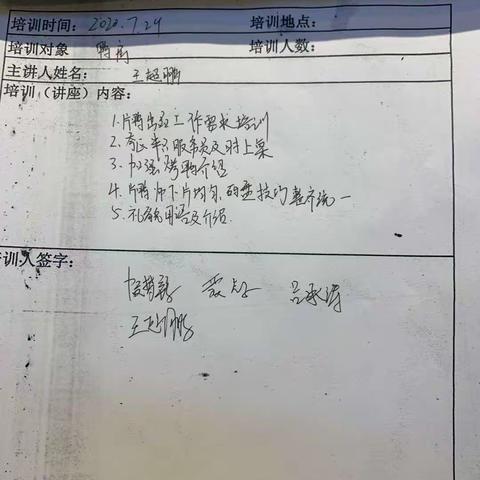 培训时间：2020.7.24 培训地点：
培训对象 鸭房 培训人数：
主讲人姓名：王超鹏
培训（讲座）内容：
1.片鸭出品工作要求培训
2. 服务员及时上菜
3.加强烤鸭介绍
4.片鸭师下片均匀 技巧整齐统一
5.礼貌用语及介绍.
培训人签字：
吕承涛
王超鹏